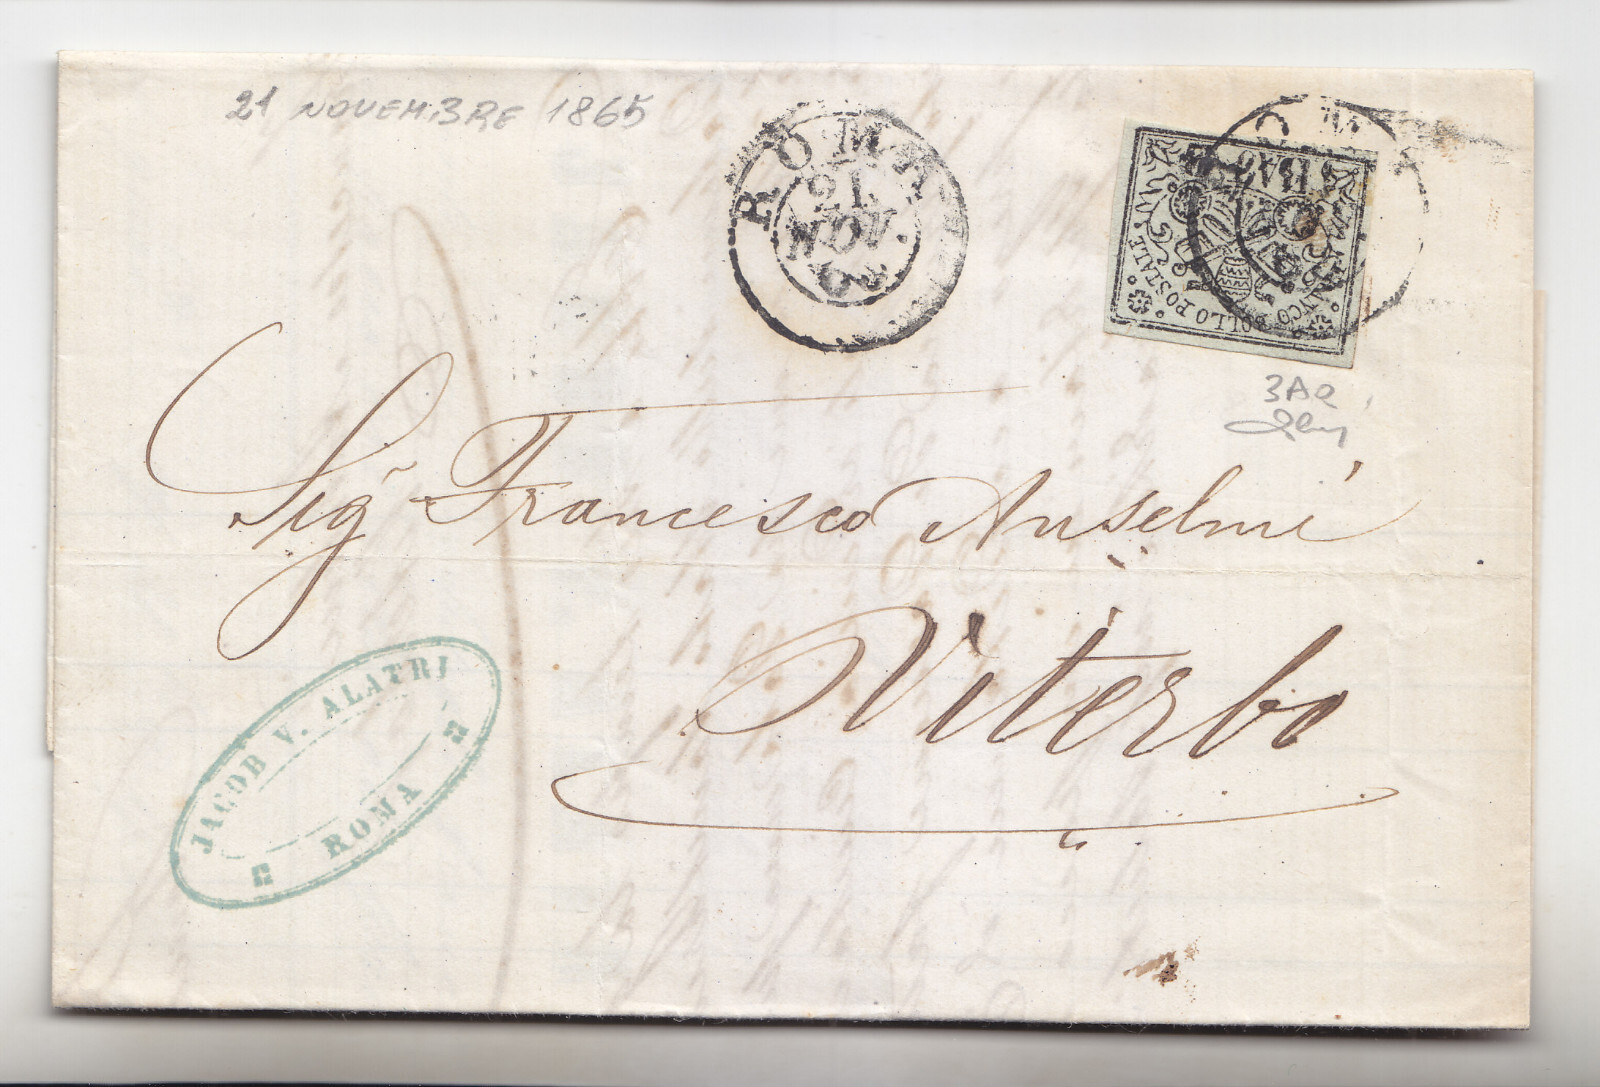 21 NOVEMBRE 1865
ROMA
21
NOV.
BAJ
FRANCO BOLLO POSTALE
3AQ
Sigr Francesco Anselmi
Viterbo
JACOB V. ALATRI
ROMA